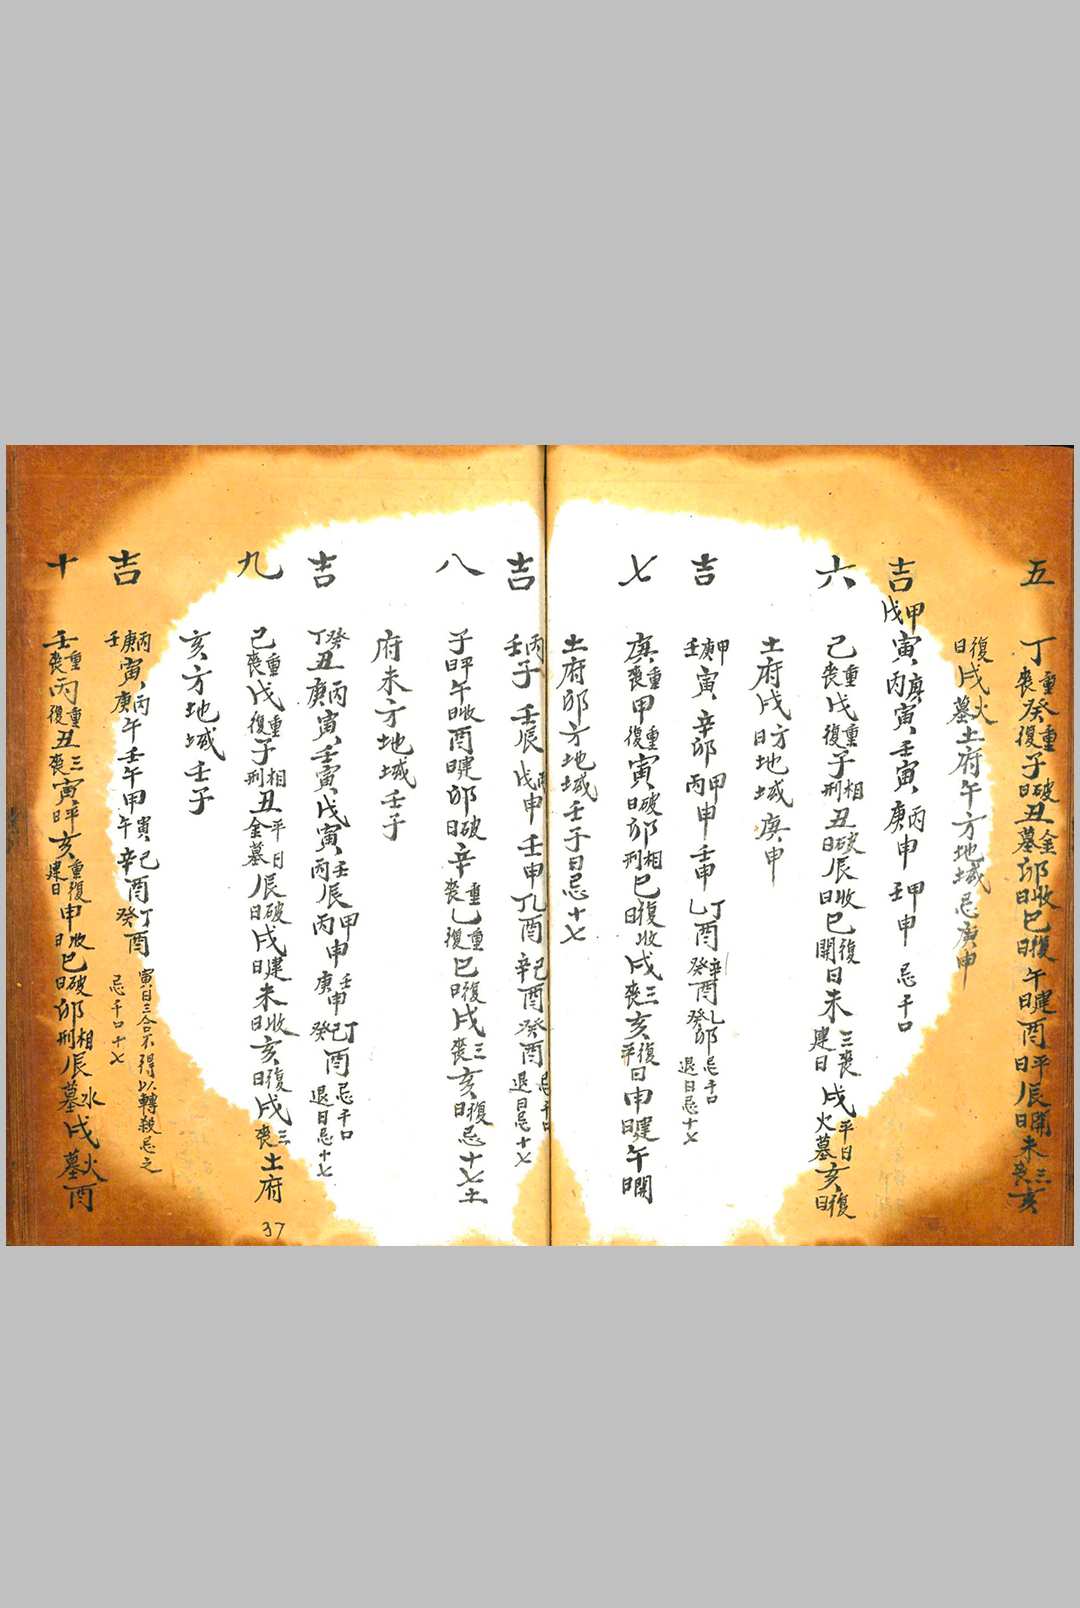 五 丁重喪癸重復子破日丑金墓卯收日巳復日午建日酉平日辰開日未三喪亥
復日戌火墓土府午方地域忌庚申
吉 甲戊寅庚丙寅壬寅丙庚申甲壬申忌千口
六 己重喪戊重復子相刑丑破日辰收日巳復開日未三喪建日戌平日火墓亥復日
土府戌方日地域庚申
吉 甲庚壬寅辛卯甲丙申壬申丁乙酉辛癸酉乙癸卯忌千口退日忌十七
七 庚重喪甲重復寅破日卯相刑巳復收日戌三喪亥復平日申建日午開日
土府卯方地域壬子日忌十七
吉 丙壬子壬辰丙戊申壬申酉己辛酉癸酉忌千口退日忌十七
八 子平日午收日酉建日卯破日辛重喪乙重復巳復日戌三喪亥復日忌十七土
府未方地域壬子
吉 癸丁丑丙庚寅壬寅戊寅壬丙辰甲丙申壬庚申丁己癸酉忌千口退日忌十七
九 己重喪戊重復子相刑丑平日金墓辰破日戌建日未收日亥復日戌三喪土府
亥方地域壬子
吉 丙庚壬寅丙庚午壬午甲寅午己辛酉丁癸酉寅日三合不得以轉殺忌之忌千口十七
十 壬重喪丙重復丑三喪寅平日亥重復建日申收日巳破日卯相刑辰水墓戌火墓酉
37